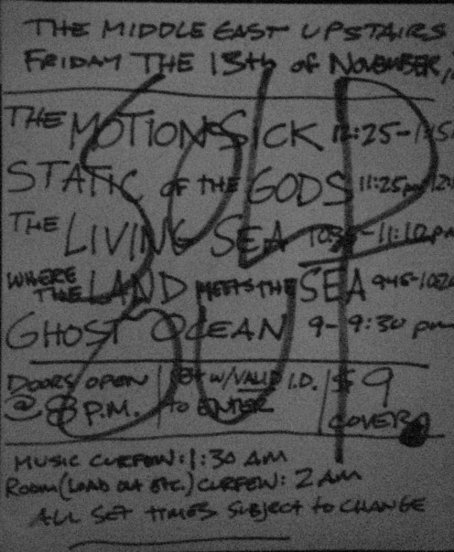 THE MIDDLE EAST UPSTAIRS
FRIDAY THE 13th of NOVEMBER,
THE MOTION SICK 12:25-1:15
STATIC OF THE GODS 11:25pm
THE LIVING SEA -11:10pm
WHERE THE LAND MEETS THE SEA 9:45-
GHOST OCEAN 9-9:30 pm
DOORS OPEN @ 8 P.M.
18+ W/VALID I.D. to ENTER
$9 COVER
SOLD OUT!
MUSIC CURFEW: 1:30 AM
ROOM (LOAD OUT ETC.) CURFEW: 2 AM
ALL SET TIMES SUBJECT to CHANGE